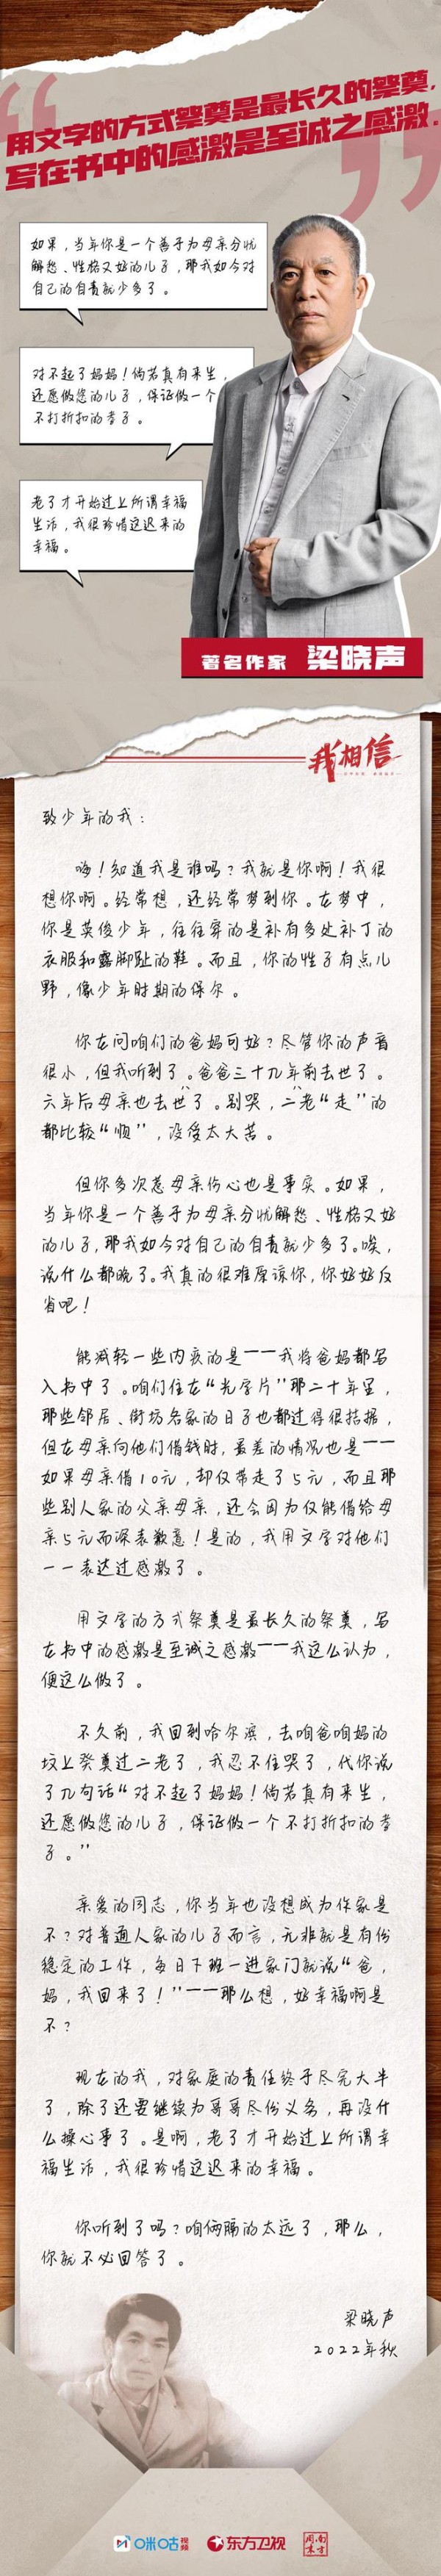 用文字的方式祭奠是最长久的祭奠,
写在书中的感激是至诚之感激.
如果，当年你是一个善于为母亲分忧
解愁、性格又好的儿子，那我如今对
自己的自责就少多了。
对不起了妈妈！倘若真有来生，
还愿做您的儿子，保证做一个
不打折扣的孝子。
老了才开始过上所谓幸福
生活，我很珍惜这迟来的
幸福。
著名作家 梁晓声
我相信
致少年的我：
嗨！知道我是谁吗？我就是你啊！我很
想你啊。经常想，还经常梦到你。在梦中，
你是英俊少年，往往穿的是补有多处补丁的
衣服和露脚趾的鞋。而且，你的性子有点儿
野，像少年时期的保尔。
你在问咱们的爸妈可好？尽管你的声音
很小，但我听到了。爸爸三十几年前去世了。
六年后母亲也去世了。别哭，二老“走”的
都比较“顺”，没受太大苦。
但你多次惹母亲伤心也是事实。如果，
当年你是一个善于为母亲分忧解愁、性格又好
的儿子,那我如今对自己的自责就少多了。唉，
说什么都晚了。我真的很难原谅你，你好好反
省吧！
能减轻一些内疚的是——我将爸妈都写
入书中了。咱们住在“光字片”那二十年里，
那些邻居、街坊各家的日子也都过得很拮据，
但在母亲向他们借钱时，最差的情况也是——
如果母亲借10元，却仅带走了5元，而且那
些别人家的父亲母亲，还会因为仅能借给母
亲5元而深表歉意！是的，我用文字对他们
一一表达过感激了。
用文字的方式祭奠是最长久的祭奠，写
在书中的感激是至诚之感激——我这么认为，
便这么做了。
不久前，我回到哈尔滨，去咱爸咱妈的
坟上祭奠过二老了，我忍不住哭了，代你说
了几句话“对不起了妈妈！倘若真有来生，
还愿做您的儿子，保证做一个不打折扣的孝
子。”
亲爱的同志，你当年也没想成为作家是
不？对普通人家的儿子而言，无非就是有份
稳定的工作，每日下班一进家门就说“爸，
妈，我回来了！”——那么想，好幸福啊是
不？
现在的我，对家庭的责任终于尽完大半
了，除了还要继续为哥哥尽份义务，再没什
么操心事了。是啊，老了才开始过上所谓幸
福生活，我很珍惜这迟来的幸福。
你听到了吗？咱俩隔的太远了，那么，
你就不必回答了。
梁晓声
2022年秋
咪咕视频 东方卫视 南方周末